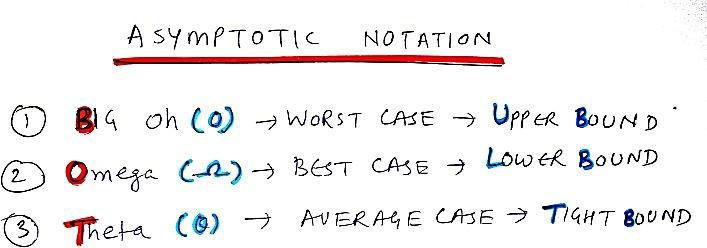 ASYMPTOTIC NOTATION
① BIG Oh (O) → WORST CASE → UPPER BOUND
② Omega (Ω) → BEST CASE → LOWER BOUND
③ Theta (θ) → AVERAGE CASE → TIGHT BOUND